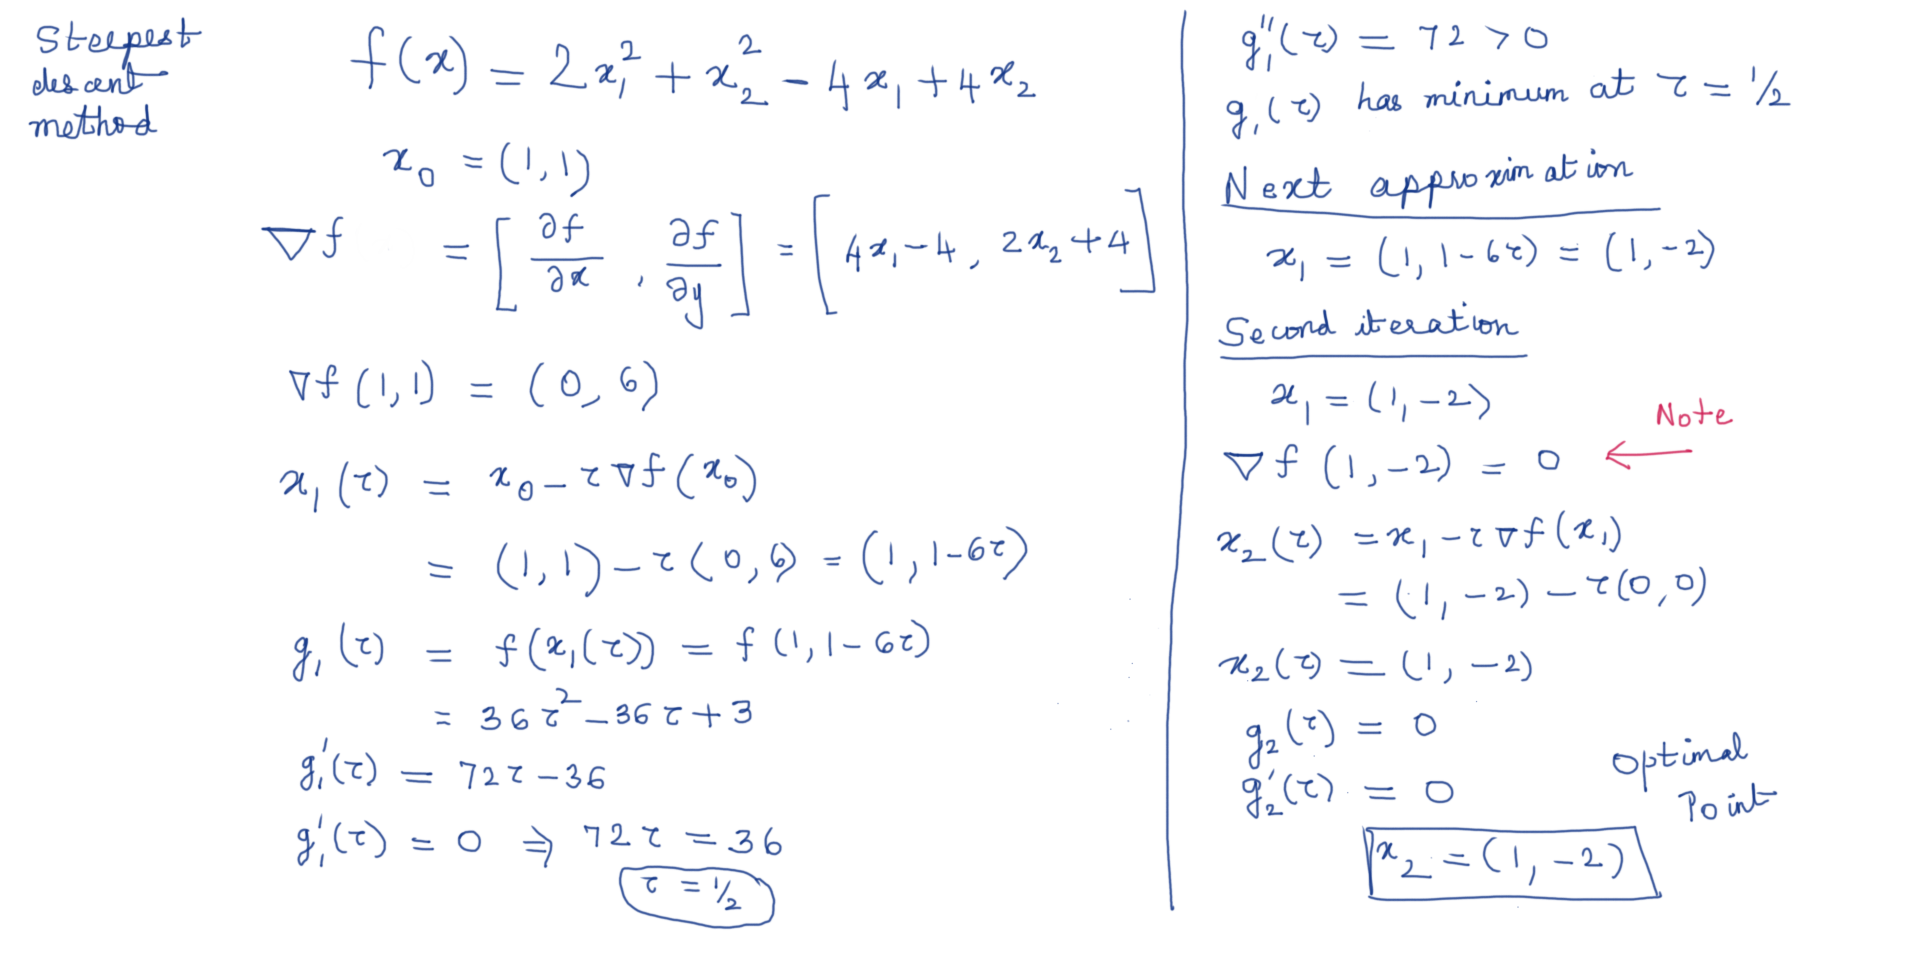 Steepest
descent
method
f(x) = 2x₁² + x₂² - 4x₁ + 4x₂
x₀ = (1,1)
∇f = [∂f/∂x , ∂f/∂y] = [4x₁-4, 2x₂+4]
∇f(1,1) = (0, 6)
x₁(τ) = x₀ - τ∇f(x₀)
= (1,1) - τ(0,6) = (1, 1-6τ)
g₁(τ) = f(x₁(τ)) = f(1, 1-6τ)
= 36τ² - 36τ + 3
g₁'(τ) = 72τ - 36
g₁'(τ) = 0 ⇒ 72τ = 36
τ = 1/2
g₁''(τ) = 72 > 0
g₁(τ) has minimum at τ = 1/2
Next approximation
x₁ = (1, 1-6τ) = (1, -2)
Second iteration
x₁ = (1, -2)
Note
∇f(1, -2) = 0 ←
x₂(τ) = x₁ - τ∇f(x₁)
= (1, -2) - τ(0,0)
x₂(τ) = (1, -2)
g₂(τ) = 0
g₂'(τ) = 0
Optimal
Point
x₂ = (1, -2)